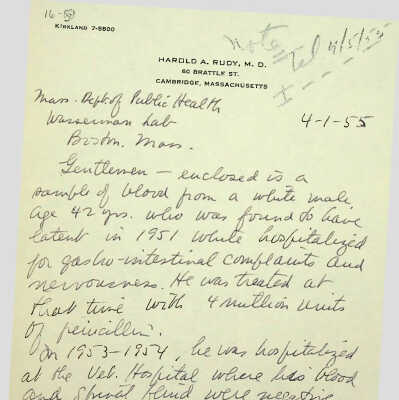 16-58
KIRKLAND 7-8800
Note
Tel 4/5/55
I - - - -
HAROLD A. RUDY, M. D.
60 BRATTLE ST.
CAMBRIDGE, MASSACHUSETTS
4-1-55
Mass. Dept of Public Health
Wasserman Lab
Boston. Mass.
Gentlemen — enclosed is a
sample of blood from a white male,
age 42 yrs. who was found to have
latent in 1951 while hospitalized
for gastro-intestinal complaints and
nervousness. He was treated at
that time with 4 million units
of penicillin.
In 1953-1954, he was hospitalized
at the Vet. Hospital where his blood
and spinal fluid were negative